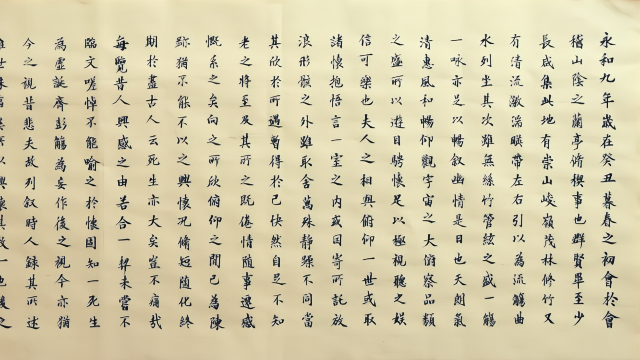 永和九年歲在癸丑暮春之初會於會
稽山陰之蘭亭脩稧事也群賢畢至少
長咸集此地有崇山峻嶺茂林修竹又
有清流激湍暎帶左右引以為流觴曲
水列坐其次雖無絲竹管絃之盛一觴
一詠亦足以暢叙幽情是日也天朗氣
清惠風和暢仰觀宇宙之大俯察品類
之盛所以遊目騁懷足以極視聽之娛
信可樂也夫人之相與俯仰一世或取
諸懷抱悟言一室之內或因寄所託放
浪形骸之外雖取舍萬殊靜躁不同當
其欣於所遇暫得於己快然自足不知
老之將至及其所之既倦情隨事遷感
慨系之矣向之所欣俯仰之間已為陳
跡猶不能不以之興懷況脩短隨化終
期於盡古人云死生亦大矣豈不痛哉
每覽昔人興感之由若合一契未嘗不
臨文嗟悼不能喻之於懷固知一死生
為虛誕齊彭殤為妄作後之視今亦猶
今之視昔悲夫故列叙時人錄其所述
雖世殊事異所以興懷其致一也後之